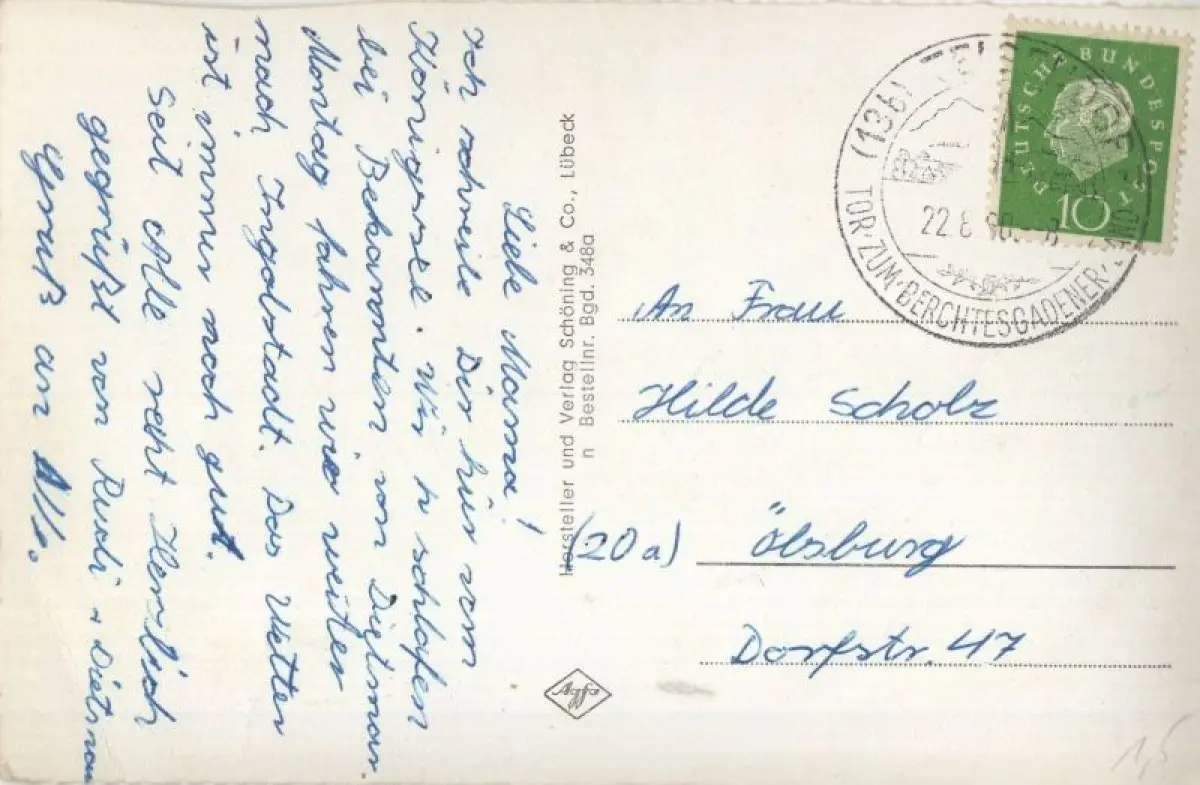 Liebe Mama!
Ich schreibe Dir hier vom
Königssee. Wir schlafen
bei Bekannten von Dietmar.
Montag fahren wir weiter
nach Ingolstadt. Das Wetter
ist immer noch gut.
Seid Alle recht Herzlich
gegrüßt von Rudi + Dietmar
Gruß an Alle.
Hersteller und Verlag Schöning & Co., Lübeck
n Bestellnr. Bgd. 348a
Agfa
(13b)
22.8.60
TOR ZUM BERCHTESGADENER LAND
DEUTSCHE BUNDESPOST
10
An Frau
Hilde Scholz
(20a) Ölsburg
Dorfstr. 47